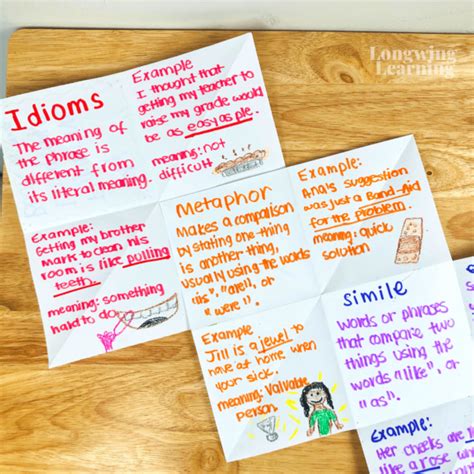 Longwing
Learning
Idioms
The meaning of
the phrase is
different from
its literal meaning.
Example
I thought that
getting my teacher to
raise my grade would
be as easy as pie.
meaning: not
difficult
Example:
Getting my brother
Mark to clean his
room is like pulling
teeth.
meaning: something
hard to do
Metaphor
Makes a comparison
by stating one thing
is another thing,
usually using the words
"is", "are", or
"were".
Example:
Ana's suggestion
was just a Band-Aid
for the problem.
meaning: quick
solution
Example
Jill is a jewel to
have at home when
your sick.
meaning: Valuable
person.
Simile
Words or phrases
that compare two
things using the
words "like", or
"as".
Example:
Her cheeks are
like a rose